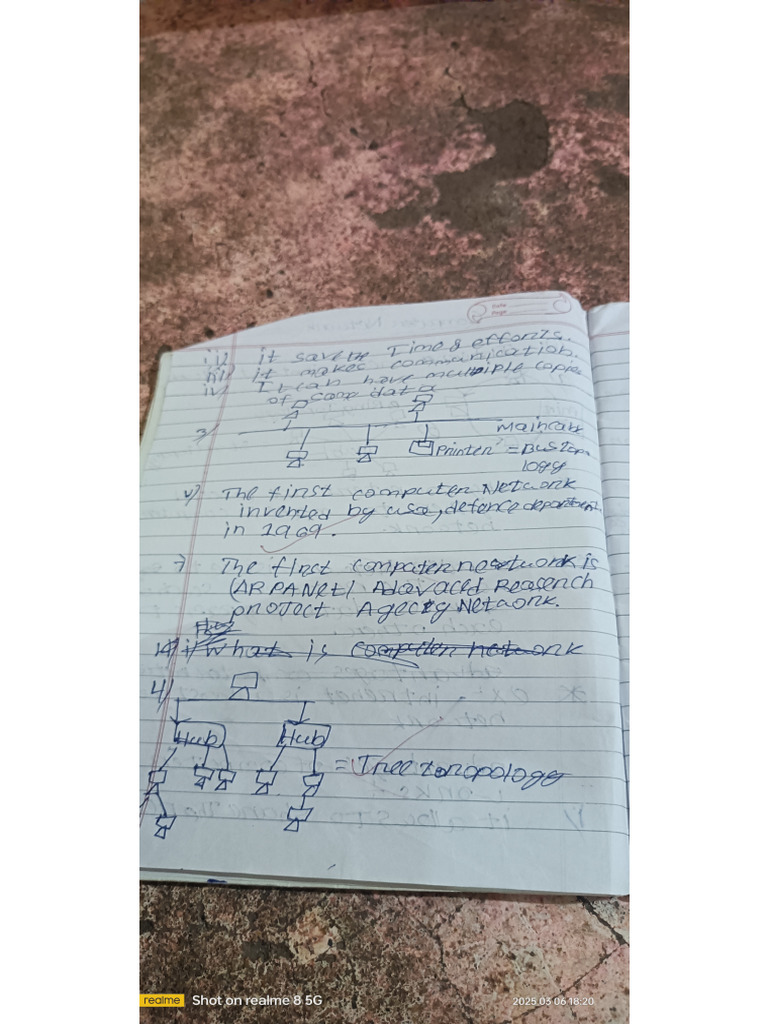 Date
Page
ii) it save the Time & efforts.
iii) it makes communication.
iv) It can have multiple copies
of same data
3)
maincabl
Printer = Bus Topo
logy
v) The first computer Network
invented by usa, defence department
in 1969.
7 The first computer nesetwork is
(ARPANet) Adavaced Reasench
project Agecty Network.
1) What is computer network
4)
Hub Hub
= Tree toropology
realme Shot on realme 8 5G 2025.03.06 18:20